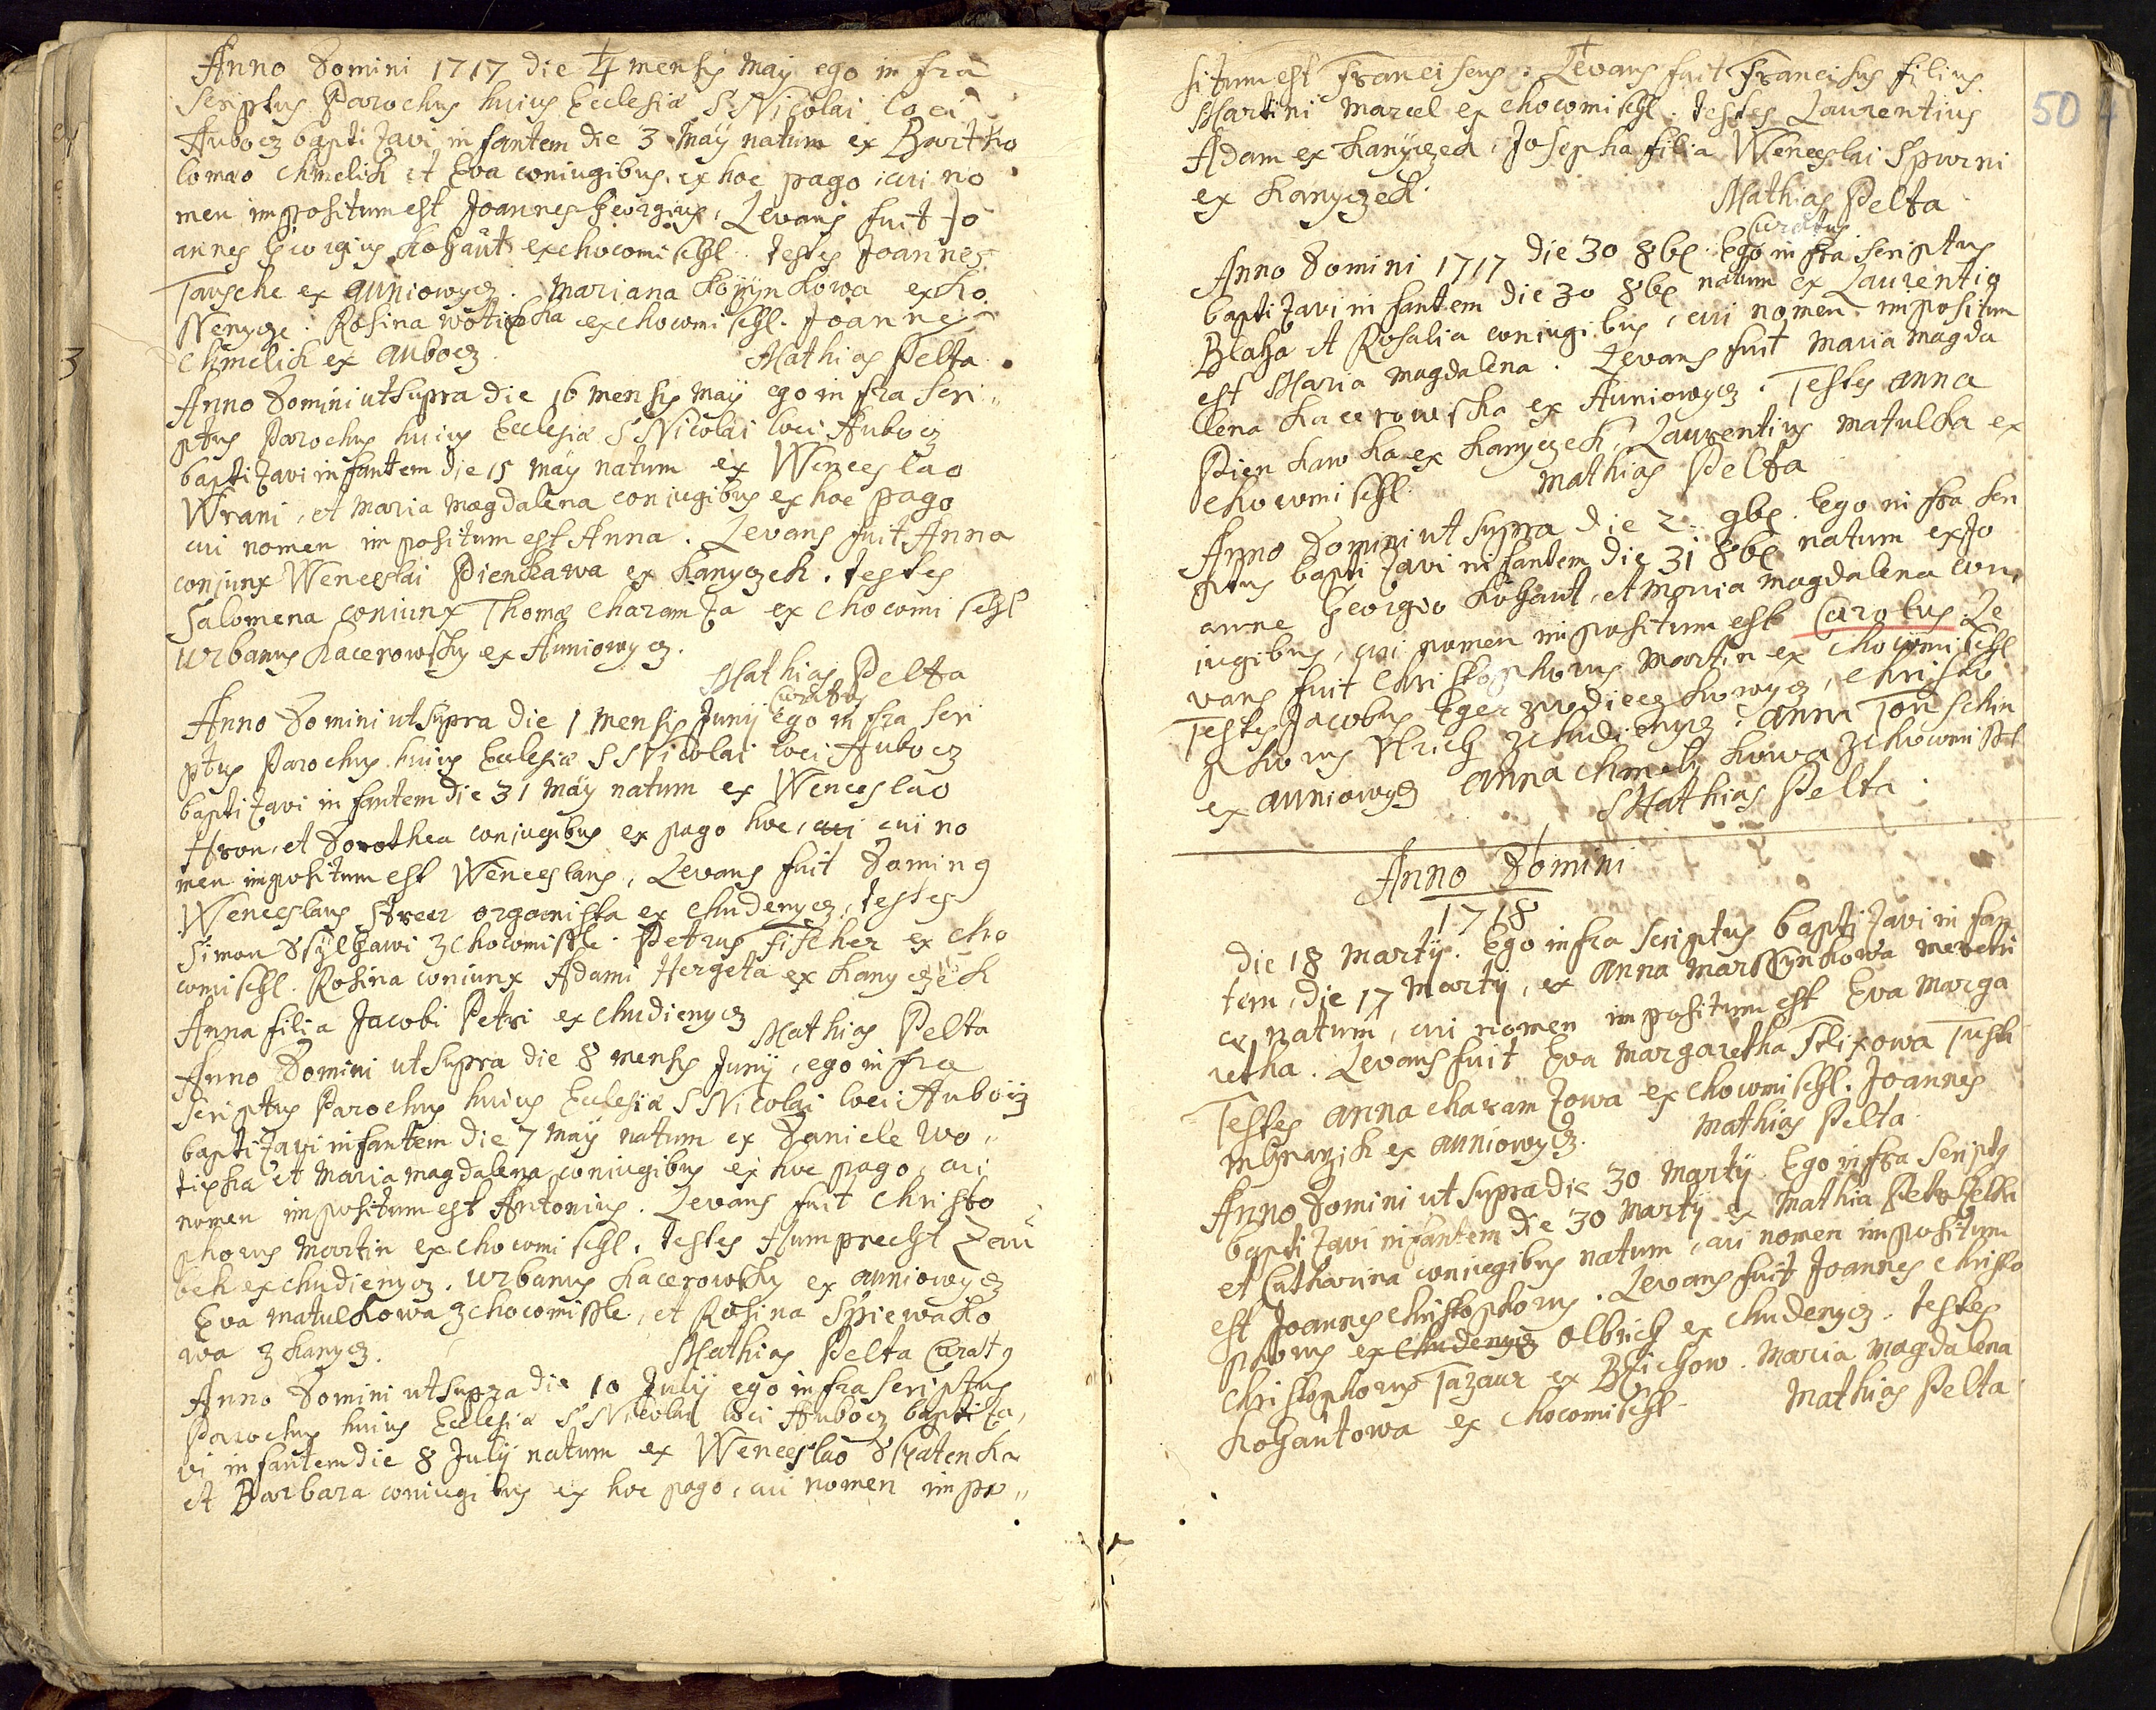 Anno Domini 1717 die 4 mensis May ego in fra
scriptus Parochus huius Ecclesiæ S Nicolai loci
Aubocz baptizavi infantem die 3 May natum ex Bartho
lomæo Chmelik et Eva coniugibus ex hoc pago, cui no
men impositum est Joannes Georgius, Levans fuit Jo
annes Georgius Kohaut ex Chocomischl. testes Joannes
Tausche ex Auniowycz. Mariana ex Ko
Nenycze. Rosina Wotipka ex Chocomischl. Joannes
Chmelick ex Aubocz. Mathias Pelta.
Anno Domini ut supra die 16 mensis May ego in fra scri„
ptus Parochus huius Ecclesiæ S Nicolai loci Aubocz
baptizavi infantem die 15 May natum ex Wenceslao
Wrani, et Maria Magdalena coniugibus ex hoc pago
cui nomen impositum est Anna. Levans fuit Anna
conjunx Wenceslai Pienckawa ex Kanyczek. testes
Salomena conjunx Thomæ Charamza ex Chocomischl
Urbanus Kacerowsky ex Auniowycz.
Mathias Pelta
Curatus
Anno Domini ut supra die 1 mensis Juny ego in fra scri
ptus Parochus huius Ecclesiæ S Nicolai loci Aubocz
baptizavi infantem die 31 May natum ex Wenceslao
Hron, et Dorothea coniugibus ex pago hoc, cui cui no
men impositum est Wenceslaus, Levans fuit Doming
Wenceslaus Streer organista ex Chudenycz, testes
Simon zchocomissle. Petrus Fischer ex Cho
comischl. Rosina coniunx Adami Hergeta ex Kanyczek
Anna filia Jacobi Petri ex Chudienycz
Mathias Pelta
Anno Domini ut supra die 8 mensis Juny, ego in fra
scriptus Parochus huius Ecclesiæ S Nicolai loci Auboiz
baptizavi infantem die 7 May natum ex Daniele Wo„
tipka et Maria Magdalena coniugibus ex hoc pago, cui
nomen impositum est Antonius. Levans fuit Christo
phorus Martin ex Chocomischl. testes Humprecht Zau
bek ex Chudienycz. Urbanus Kacerowsky ex Auniowycz
Eva Matulkowa zchocomissle, et Rosina Spiewacko
wa z Kanycz. Mathias Pelta Curat9
Anno Domini ut supra die 10 July ego infra scriptus
Parochus huius Ecclesiæ S Nicolai loci Aubocz baptiza„
vi infantem die 8 July natum ex Wenceslao
et Barbara coniugibus ex hoc pago, cui nomen impo„
situm est Franciscus. Levans fuit Franciscus filius
Martini Marcel ex Chocomischl. testes Laurentius
Adam ex Kanyczek, Josepha filia Wenceslai Spurni
ex Kanyczek.
Mathias Pelta
Curatus
50
Anno Domini 1717 die 30 8be. Ego infra scriptus
baptizavi infantem die 30 8be natum ex Laurentio
Blaha et Rosalia coniugibus, cui nomen impositum
est Maria Magdalena. Levans fuit Maria Magda
lena Kacerowska ex Auniowycz. Testes Anna
Pienkawka ex Kanyczek, Laurentius Matulka ex
Chocomischl. Mathias Pelta
Anno Domini ut supra die 2 9be. Ego in fra scri
ptus baptizavi infantem die 31 8be natum ex Jo
anne Georgio Kohaut, et Maria Magdalena con„
iugibus, cui nomen impositum est Carolus. Le
vans fuit Christophorus Martin ex Chocomischl
Testes Jacobus Eger Christo
phorus Ulrich zchudienycz. Anna
ex Auniowycz Anna kowa zchocomissl
Mathias Pelta
Anno Domini
1718
Die 18 Marty. Ego infra scriptus baptizavi infan
tem, die 17 Marty, ex Anna meretri
ce natum, cui nomen impositum est Eva Marga
retha. Levans fuit Eva Margaretha
Testes Anna Charamzowa ex Chocomischl. Joannes
ex Auniowycz. Mathias Pelta
Anno Domini ut supra die 30 Marty. Ego infra script9
baptizavi infantem die 30 Marty ex Mathia
et Catharina coniugibus natum, cui nomen impositum
est Joannes Christophorus. Levans fuit Joannes Christo
phorus ex Chudenycz Olbrich ex Chudenycz. testes
Christophorus ex. Maria Magdalena
Kohautowa ex Chocomischl. Mathias Pelta